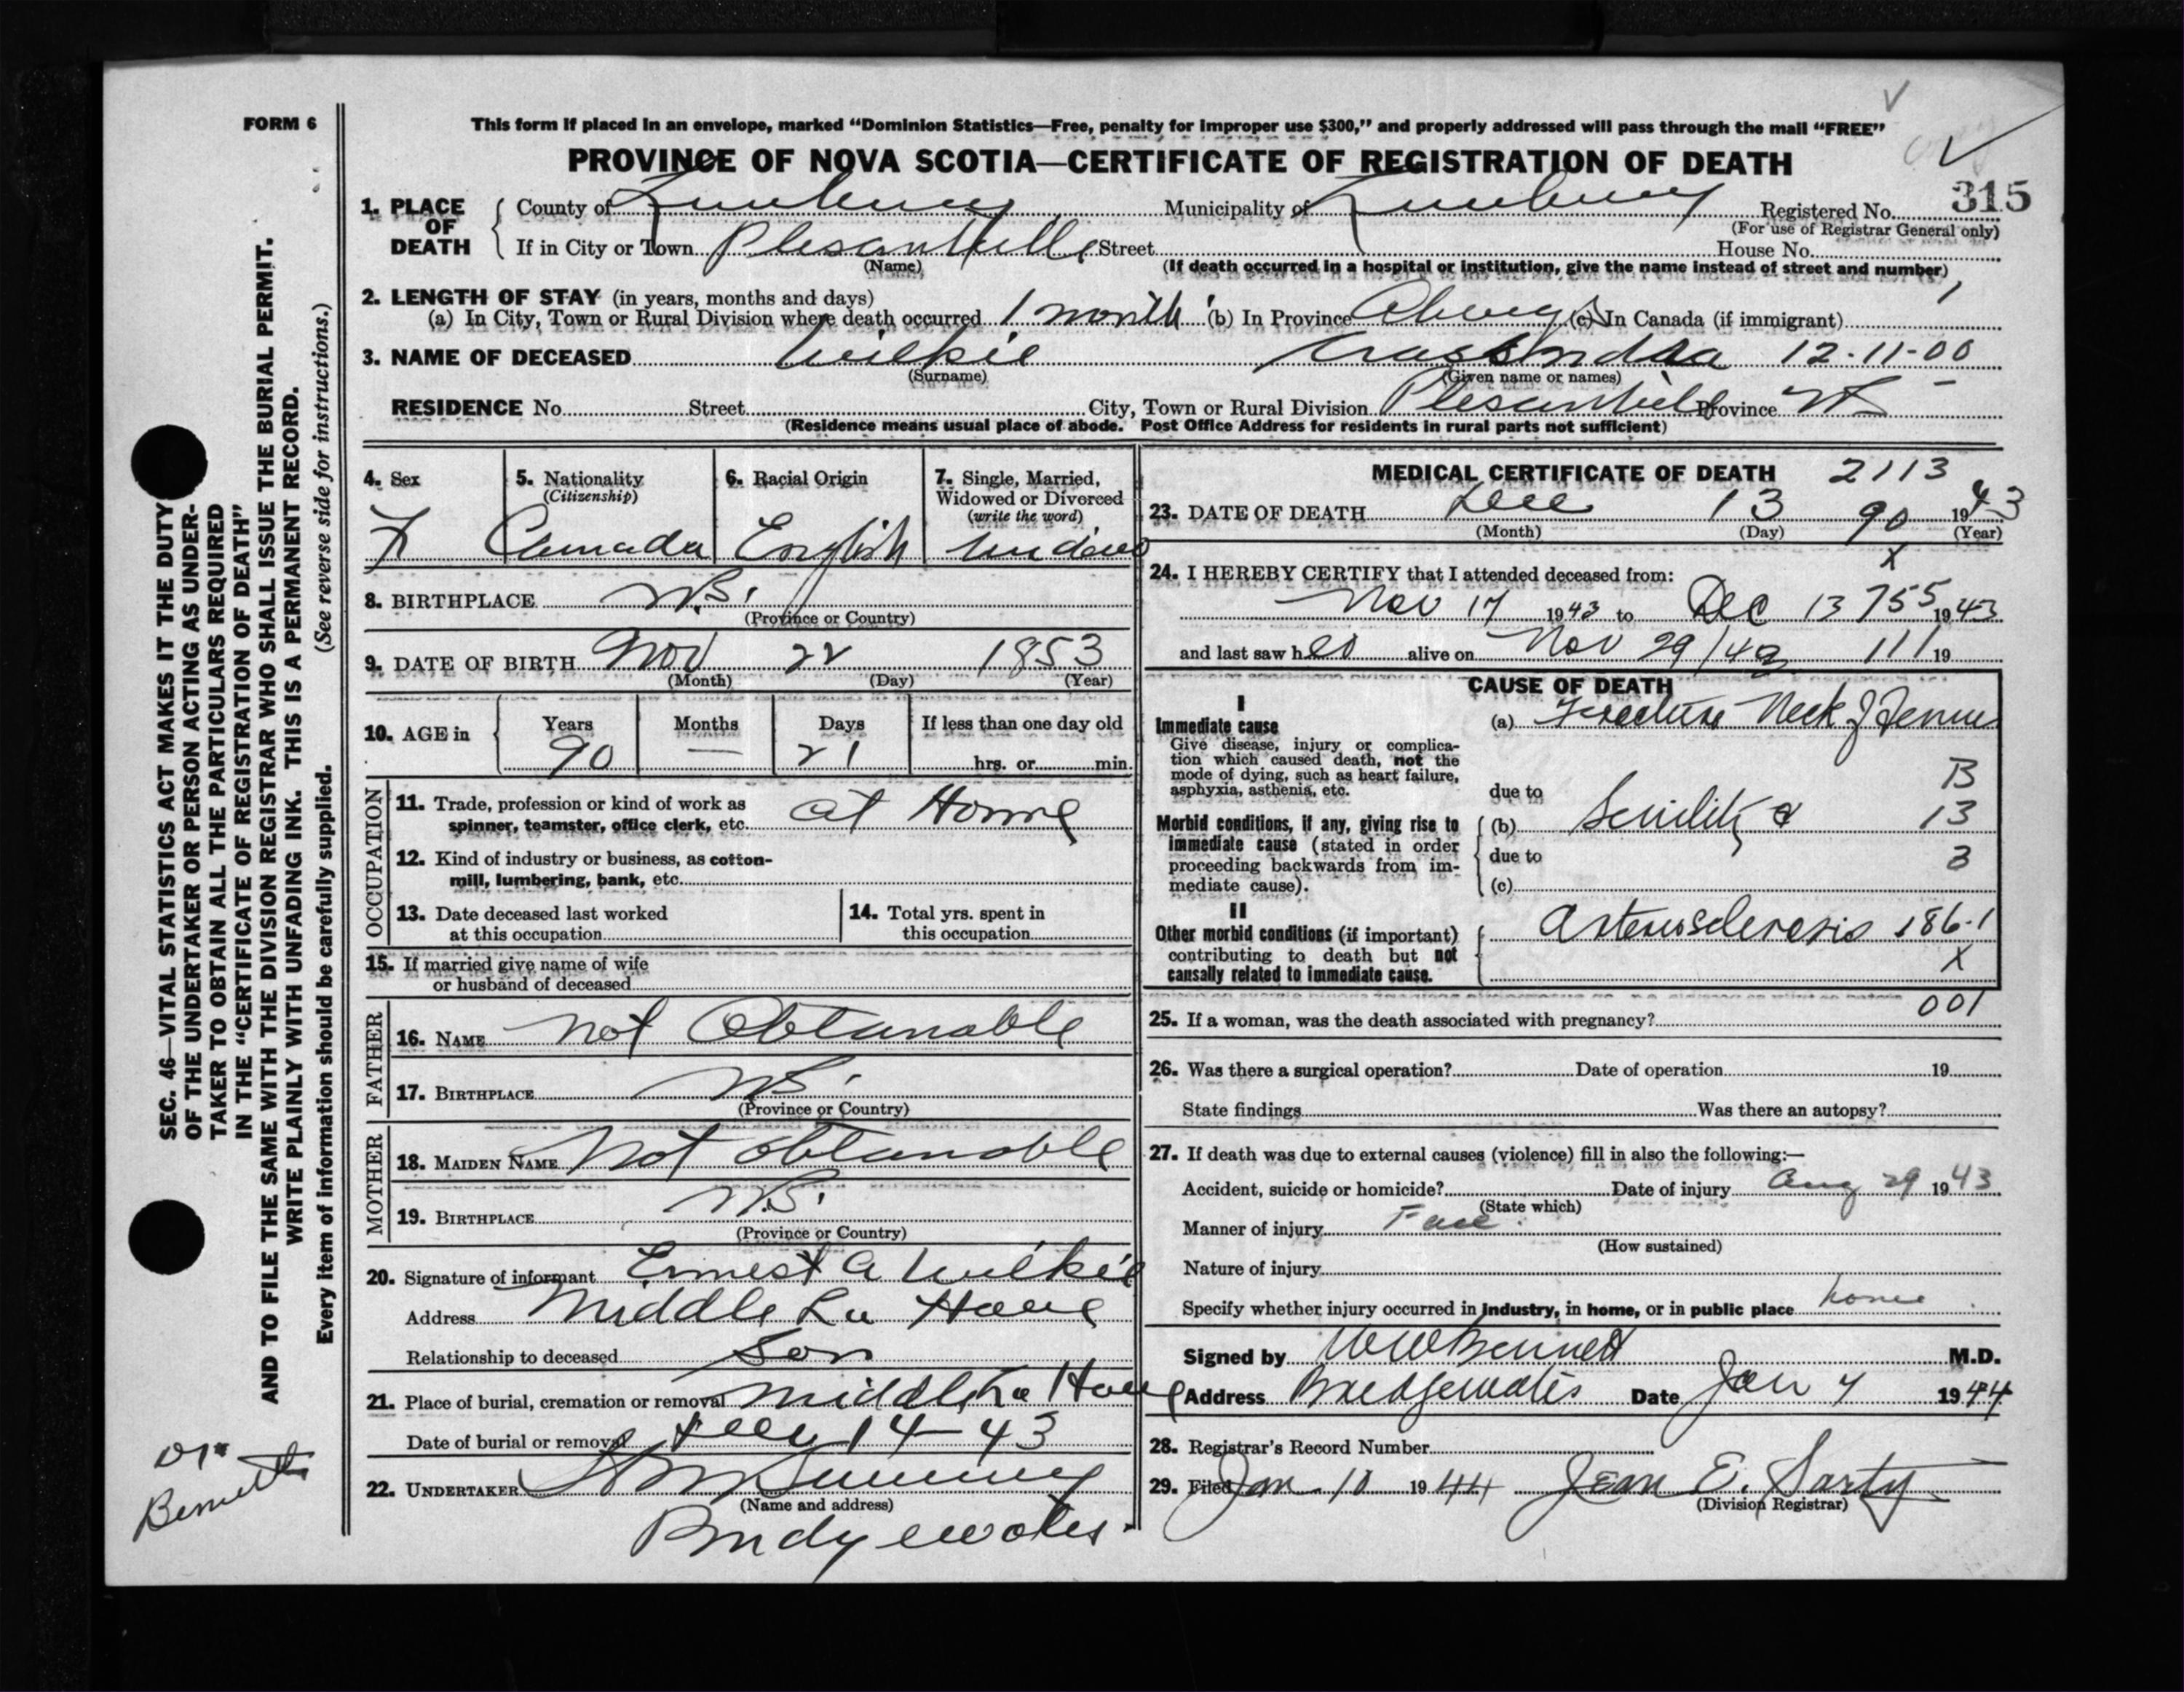 FORM 6
This form if placed in an envelope, marked “Dominion Statistics—Free, penalty for improper use $300,” and properly addressed will pass through the mail “FREE”
PROVINCE OF NOVA SCOTIA—CERTIFICATE OF REGISTRATION OF DEATH
315
1. PLACE OF DEATH County of Lunenburg Municipality of Lunenburg Registered No.
(For use of Registrar General only)
If in City or Town Plesantville Street House No.
(Name) (If death occurred in a hospital or institution, give the name instead of street and number)
2. LENGTH OF STAY (in years, months and days)
(a) In City, Town or Rural Division where death occurred 1 month (b) In Province Always (c) In Canada (if immigrant)
3. NAME OF DECEASED Wilkie 12-11-00
(Surname) (Given name or names)
RESIDENCE No. Street City, Town or Rural Division Plesantville Province NS
(Residence means usual place of abode. Post Office Address for residents in rural parts not sufficient)
4. Sex 5. Nationality 6. Racial Origin 7. Single, Married,
(Citizenship) Widowed or Divorced
(write the word)
F Canada English Widow
8. BIRTHPLACE N.S.
(Province or Country)
9. DATE OF BIRTH Nov 22 1853
(Month) (Day) (Year)
10. AGE in Years Months Days If less than one day old
90 — 21 hrs. or min.
OCCUPATION
11. Trade, profession or kind of work as
spinner, teamster, office clerk, etc. at Home
12. Kind of industry or business, as cotton-
mill, lumbering, bank, etc.
13. Date deceased last worked 14. Total yrs. spent in
at this occupation this occupation
15. If married give name of wife
or husband of deceased
FATHER
16. NAME not Obtanable
17. BIRTHPLACE N.S.
(Province or Country)
MOTHER
18. MAIDEN NAME Not obtanable
19. BIRTHPLACE N.S.
(Province or Country)
20. Signature of informant Ernest A Wilkie
Address Middle La Have
Relationship to deceased Son
21. Place of burial, cremation or removal Middle La Have
Date of burial or removal Dec 14-43
22. UNDERTAKER
(Name and address)
Bridgewater
MEDICAL CERTIFICATE OF DEATH 2113
23. DATE OF DEATH Dec 13 90 1943
(Month) (Day) (Year)
X
24. I HEREBY CERTIFY that I attended deceased from:
Nov 17 1943 to Dec 13 755 1943
and last saw her alive on Nov 29/43 111 19
CAUSE OF DEATH
I
Immediate cause (a) Fracture Neck of Femur
Give disease, injury or complica-
tion which caused death, not the
mode of dying, such as heart failure,
asphyxia, asthenia, etc. due to B
Morbid conditions, if any, giving rise to (b) Senility & 13
immediate cause (stated in order
proceeding backwards from im- due to 3
mediate cause). (c)
II
Other morbid conditions (if important) Arteriosclerosis 186-1
contributing to death but not X
causally related to immediate cause.
001
25. If a woman, was the death associated with pregnancy?
26. Was there a surgical operation? Date of operation 19
State findings Was there an autopsy?
27. If death was due to external causes (violence) fill in also the following:—
Accident, suicide or homicide? Date of injury Aug 29 1943
(State which)
Manner of injury Fall.
(How sustained)
Nature of injury
Specify whether injury occurred in industry, in home, or in public place home
Signed by W W Bennett M.D.
Address Bridgewater Date Jan 7 1944
28. Registrar's Record Number
29. Filed Jan. 10 1944 Jean E. Sarty
(Division Registrar)
SEC. 46—VITAL STATISTICS ACT MAKES IT THE DUTY
OF THE UNDERTAKER OR PERSON ACTING AS UNDER-
TAKER TO OBTAIN ALL THE PARTICULARS REQUIRED
IN THE “CERTIFICATE OF REGISTRATION OF DEATH”
AND TO FILE THE SAME WITH THE DIVISION REGISTRAR WHO SHALL ISSUE THE BURIAL PERMIT.
WRITE PLAINLY WITH UNFADING INK. THIS IS A PERMANENT RECORD.
Every item of information should be carefully supplied. (See reverse side for instructions.)
Dr
Bennett